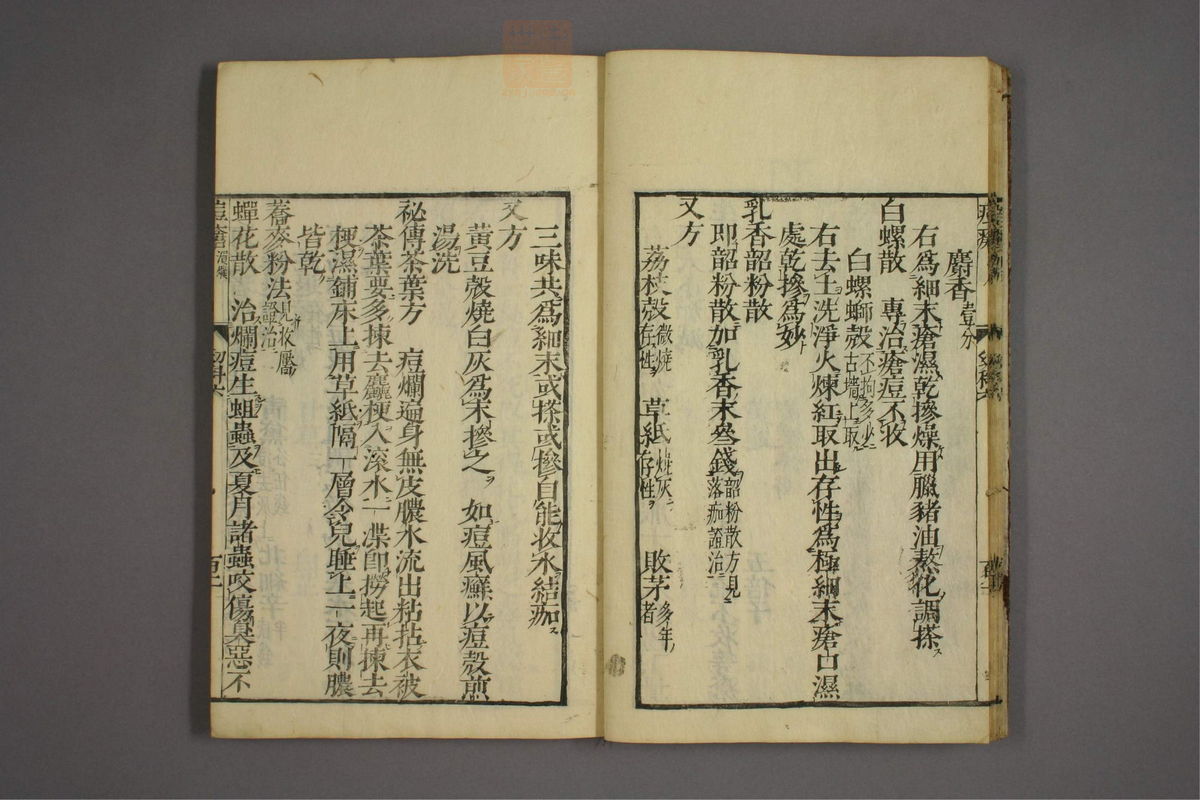 麝香壹分
右爲細末瘡濕乾摻燥用臘豬油熬化調搽
白螺散 專治瘡痘不收
白螺螄殼不拘多少古墻上取
右去土洗淨火煉紅取出存性爲極細末瘡口濕
處乾摻爲妙
乳香韶粉散
即韶粉散加乳香末叁錢韶粉散方見落痂證治
又方
荔枝殼微燒存性 草紙燒灰存性 敗茅多年者
三味共爲細末或搽或摻自能收水結痂
又方
黃豆殼燒白灰爲末摻之 如痘風癬以痘殼煎
湯洗
祕傳茶葉方 痘爛遍身無皮膿水流出粘拈衣被
茶葉要多揀去麄梗入滚水一渫卽撈起再揀去
梗濕鋪床上用草紙隔一層令兒睡上一夜則膿
皆乾
蕎麥粉法見收靨證治
蟬花散 治爛痘生蛆蟲及夏月諸蟲咬傷臭惡不